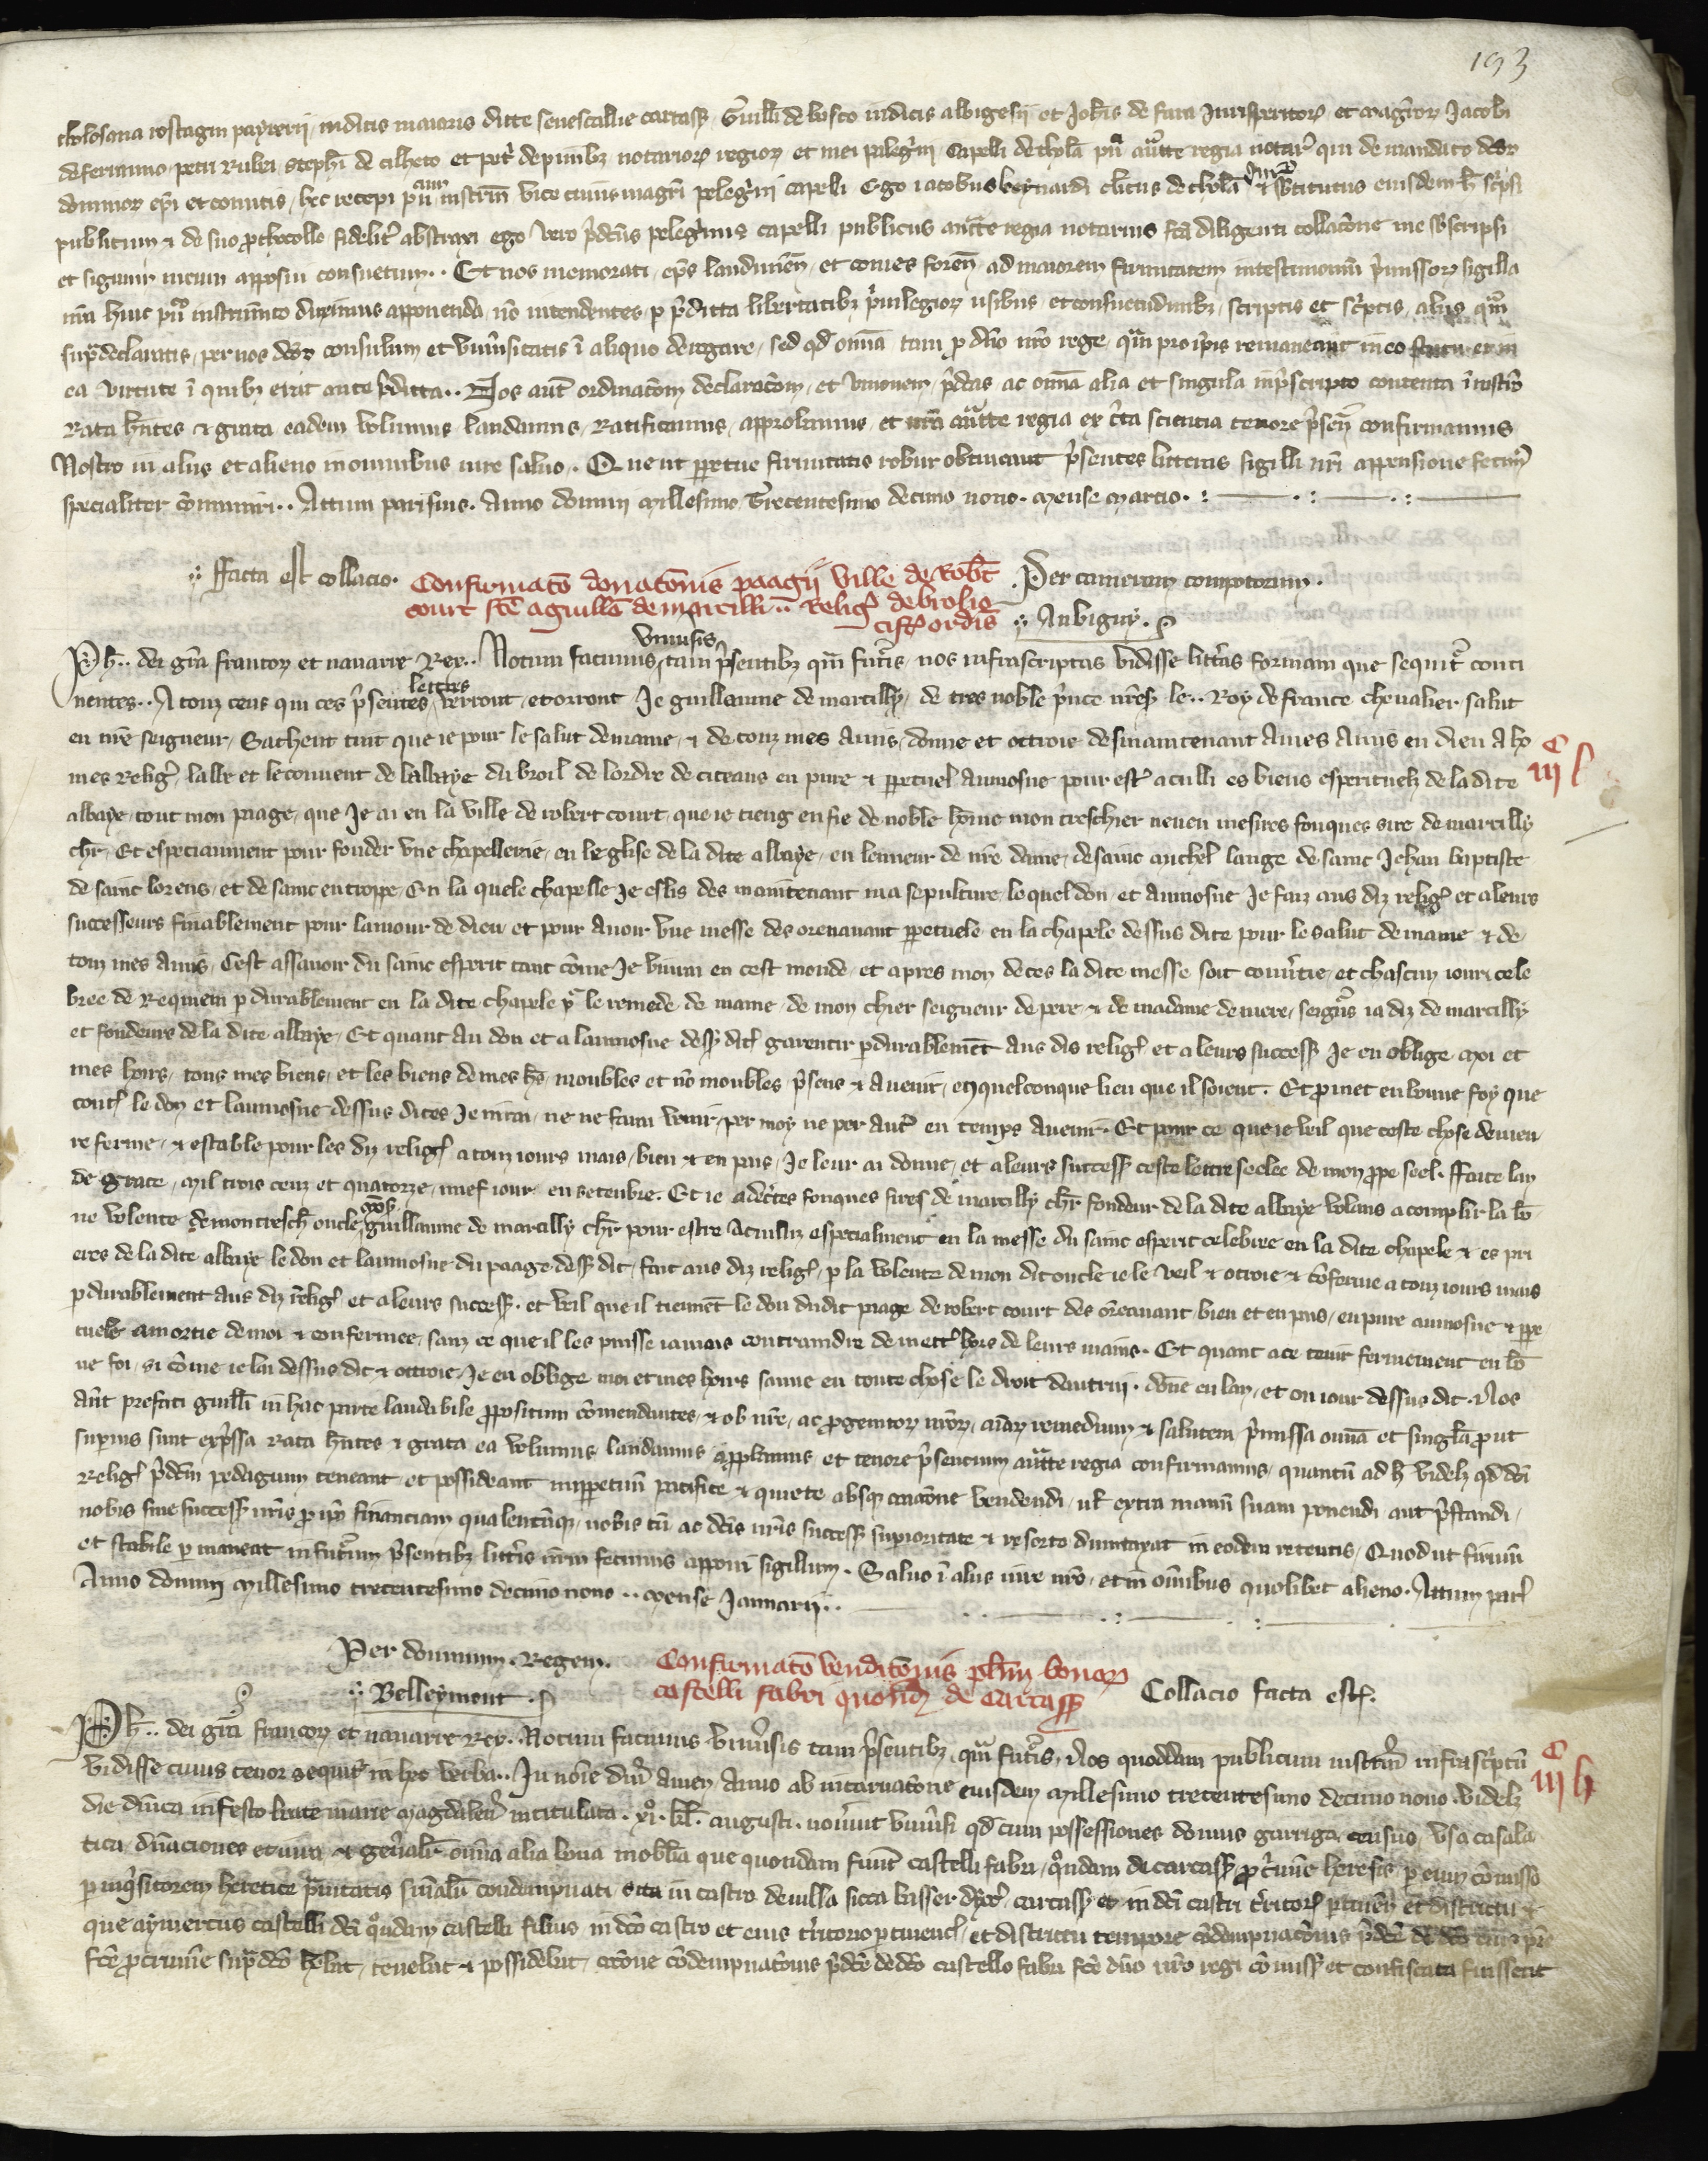 193
tholosana rostagni payrerii iudicis maioris dicte senescallie carcass Guilli de bosco iudicis albigesii et Johis de fara Jurisperitor et magror Jacobi
de fermino petri Rubei stephi de cilheto et petr de pinibz notarior regior et mei pelegrini Capelli de thola pu aucte regia notar qui de mandato dcor
dominor epi et comitis hec recepi pu instrm vice cuius magri pelegrini capelli Ego iacobus beynardi clicus de thola Jur et sbstitutus eiusdem h scpsi
publicum et de suo prothocollo fidelit abstraxi ego vero pdcus pelegrinus capelli publicus aucte regia notarius fca diligenti collacone me sbscripsi
et signum meum apposui consuetum .. Et nos memorati eps laudunen et comes foren ad maiorem firmitatem in testimonium pmissor sigilla
nra huic pu instrumto duximus apponenda no intendentes p pdicta libertatibz privilegior usibus et consuetudinibz scriptis et no scptis aliis qm
supradeclaratis per nos dcor consulum et univsitatis i aliquo derogare sed qd omia tam p dno nro rege qm pro ipis remaneant in eo statu et in
ea virtute i quibz erat ante pdicta .. Nos aut ordinacom declaracom et unionem pdcas ac omia alia et singula in pscripto contenta instro
Rata hntes et grata eadem volumus laudamus Ratificamus approbamus et nra aucte regia ex certa sciencia tenore psen confirmamus
Nostro in aliis et alieno in omnibus iure salvo . Que ut ppetue firmitatis robur obtineant psentes litteras sigilli nri appensione fecim
specialiter comuniri .. Actum parisius . Anno domini Millesimo Trecentesimo decimo nono . Mense Marcio .
Facta est collacio .
Confirmato donatonis paagii ville de Robt
court fce a guillo de marcilli .. Relig de brolio
cist ordis
Per cameram compotorum .
Aubigny .
Ph .. dei gra francor et navarre Rex .. Notum facimus univsis tam psentibz qm futis nos infrascriptas vidisse littas formam que sequit conti
nentes .. A touz ceus qui ces psentes lettres verront et orront Je guillaume de marcilly de tres noble pnce nres le .. Roy de france chevalier salut
en nre seigneur Sachent tuit que ie pour le salut de mame et de touz mes Amis donne et ottroie des maintenant A mes Amis en dieu A ho
mes Relig labbe et le couvent de labbaye du broil de lordre de citeaus en pure et ppetuel aumosne pour est acuilli es biens esperituelz de la dite
abbaye tout mon paage que Je ai en la ville de robert court que ie tieng en fie de noble home mon treschier neveu mesires fouques sire de marcilly
chr Et especiaument pour fonder une chapellerie en leglise de la dite abbaye en lenneur de nre dame de sainc michel lange de sainc Jehan baptiste
de sainc lorens et de sainc eutrope En la quele chapelle Je eslis des maintenant ma sepulture le quel don et aumosne Je faiz aus diz relig et a leurs
successeurs finablement pour lamour de dieu et pour avoir une messe des orenavant ppetuele en la chapele dessus dite pour le salut de mame et de
touz mes amis Cest assavoir du sainc esperit tant come Je vivrai en cest monde et apres mon deces la dite messe soit couvtie et chascun iour cele
bree de Requiem p durablement en la dite chapele p le remede de mame de mon chier seigneur de pere et de madame de mere seigns ia diz de marcilly
et fondeurs de la dite abbaye Et quant au don et a laumosne dess dit garentir pdurablemet aus dis relig et a leurs success Je en oblige moi et
mes hoirs tous mes biens et les biens de mes hs moubles et no moubles psens et avenir en quelconque lieu que il soient . Et pmet en bonne foy que
cont le don et laumosne dessus dites Je nirai ne ne fairai venir per moy ne per aut en temps avenir . Et pour ce que ie veil que ceste chose demeu
re ferme et estable pour les diz relig a touz iours mais bien et en pais Je leur ai donne et a leurs success ceste lettre seelee de mon ppe seel . Faite lan
de grace mil trois cenz et quatorze nuef iour en setenbre . Et ie adectes fouques sires de marcilly chr fondeur de la dite abbaye volans acomplir la bo
ne volente de mon tresch oncle mos guillaume de marcilly chr pour estre acuilliz especialment en la messe du sainc esperit celebree en la dite chapele et es pri
eres de la dite abbaye le don et laumosne du paage dess dit fait aus diz relig p la volente de mon dit oncle ie le veil et otroie et coferme a touz iours mais
pdurablement aus diz relig et a leurs success . et veil que il tienet le don dudit paage de robert court des orenavant bien et en pais en pure aumosne et ppe
tuele amortie de moi et confermee sanz ce que il les puisse iamais contraindre de mett hors de leurs mains . Et quant a ce tenir fermement en bo
ne foi si come ie lai dessus dit et ottroie Je en obblige moi et mes hoirs sauve en toute chose le droit dautrui . done en lan et ou iour dessus dit . Nos
aut prefati guilli in hac parte laudabile ppositum comendantes et ob nre ac pgenitor nror aiar remedium et salutem pmissa omia et singla prout
supius sunt expssa Rata hntes et grata ea volumus laudamus approbamus et tenore psentium aucte regia confirmamus quantu ad h videlz qd dci
Relig pdcm pedagium teneant et possideant inppetuu pacifice et quiete absq coacone vendendi vl extra manu suam ponendi aut pstandi
nobis sive success nris p ipo financiam qualemcuqz nobis tn ac dcis nris success supioritate et resorto dumtaxat in eodem retentis Quod ut firmu
et stabile pmaneat in futum psentibz littis nrm fecimus apponi sigillum . Salvo i aliis iure nro et in omibus quolibet alieno . Actum par
Anno domini Millesimo trecentesimo decimo nono .. Mense Januarii ..
C
iiii l
Per dominum Regem .
Belleymont .
Confirmato venditonis plim bonor
castelli fabri quond de Carcass
Collacio facta est .
Ph .. dei gra francor et navarre Rex . Notum facimus univsis tam psentibz qm futis Nos quoddam publicum instrum infrascptu
vidisse cuius tenor sequit in hec verba .. In noie dni amen Anno ab incarnacone eiusdem Millesimo trecentesimo decimo nono videlz
die dnica in festo beate marie Magdalen intitulata . xi . kl . augusti . novint univsi qd cum possessiones domus garriga census usa casala
tica dnaciones et iura et genalit omia alia bona mobilia que quondam fuint castelli fabri qondam de carcass p cimine heresis p eum comisso
p inqsitorem heretice pvitatis sntialit condempnati sita in castro de villa sicca basser dyoc carcass et in dci castri tritor ptinen et districtu et
que aymericus castelli dci qondam castelli filius in dco castro et eius tritorio ptinenc et districtu tempore condempnaconis
fce p crimine supdco hebat tenebat et possidebat racone condempnaconis pdce de dco castello fabri fce dno nro regi comiss et confiscata fuissent
C
iiii h